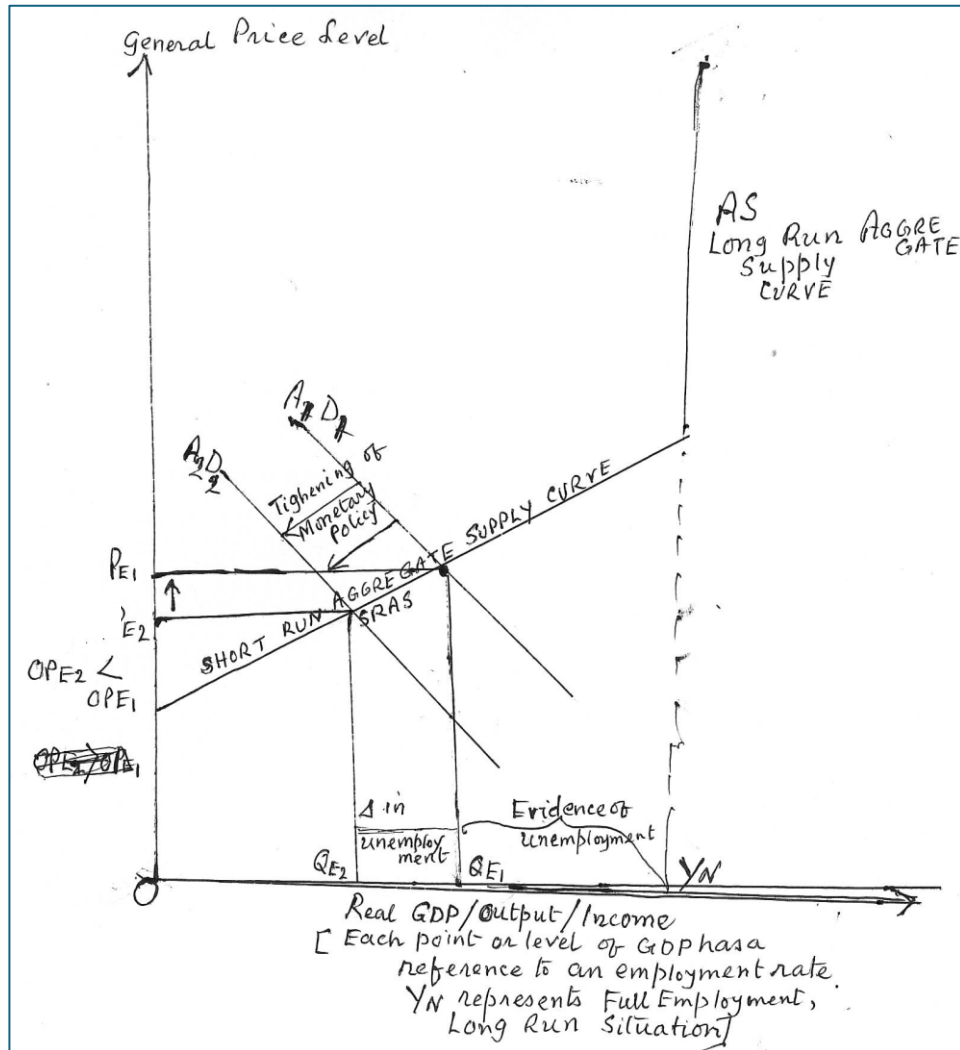 General Price Level
AS
Long Run AGGRE
GATE
Supply
CURVE
A1 D1
A2D2
Tighening of
Monetary
Policy
SHORT RUN AGGREGATE SUPPLY CURVE
SRAS
PE1
E2
OPE2 <
OPE1
OPE2>OPE1
Δ in
unemploy
ment
Evidence of
unemployment
QE2
QE1
YN
O
Real GDP/Output/Income
[Each point or level of GDP has a
reference to an employment rate.
YN represents Full Employment,
Long Run Situation]